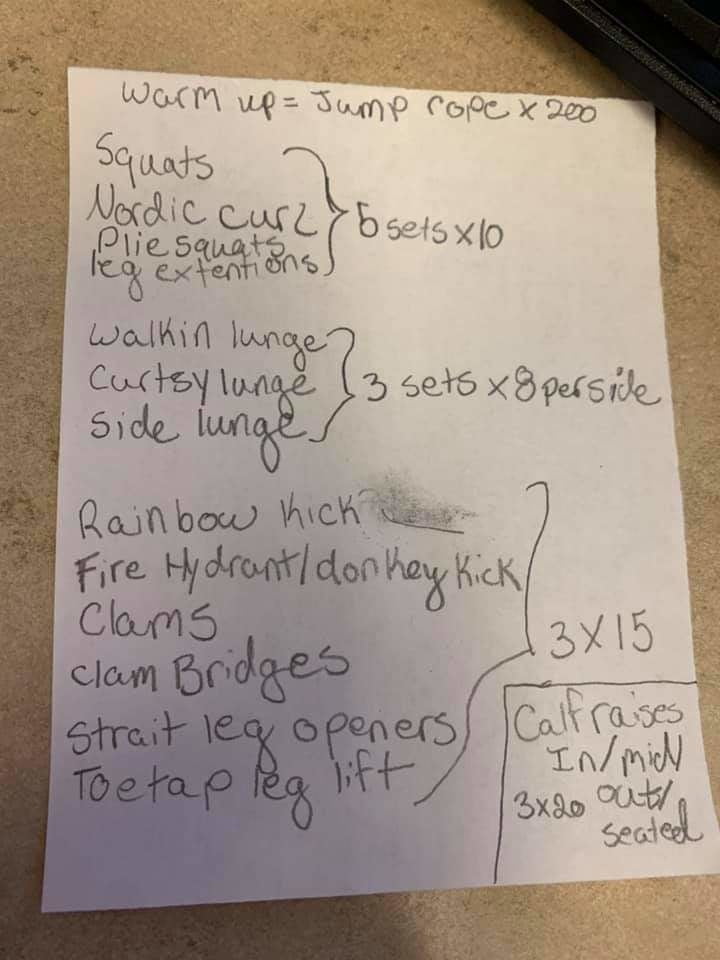 Warm up = Jump rope x 200
Squats
Nordic curl
Plie squats
leg extentions
5 sets x10
Walkin lunge
Curtsy lunge
Side lunge
3 sets x 8 per side
Rainbow Kick
Fire Hydrant/donkey Kick
Clams
clam Bridges
Strait leg openers
Toetap leg lift
3X15
Calf raises
In/mid/
3x20 out/
seated